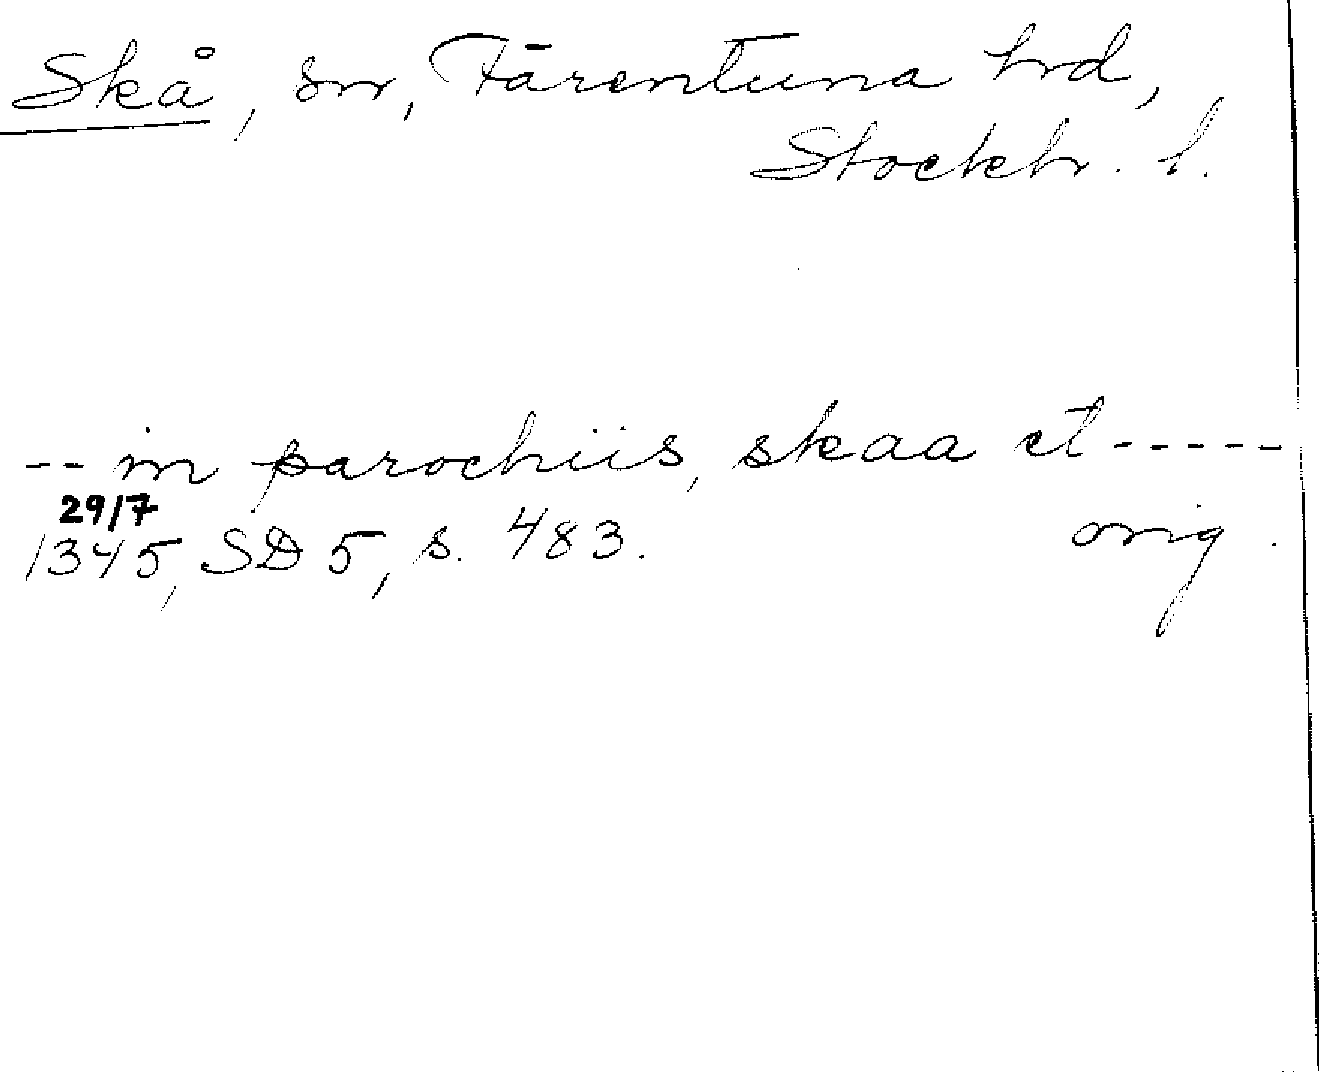 Skå, sn, Färentuna hrd,
Stockh. l.
-- in parochiis, skaa et -----
29/7
1345, SD 5, s. 483. orig.